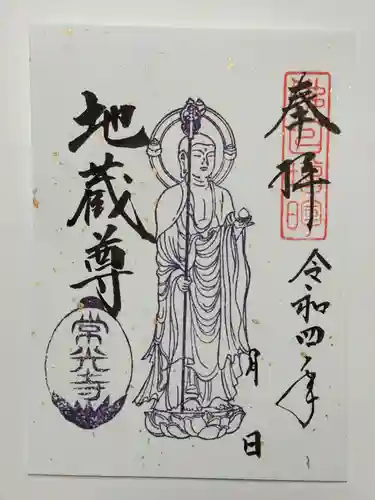 奉拝
令和四年
月 日
地蔵尊
常光寺